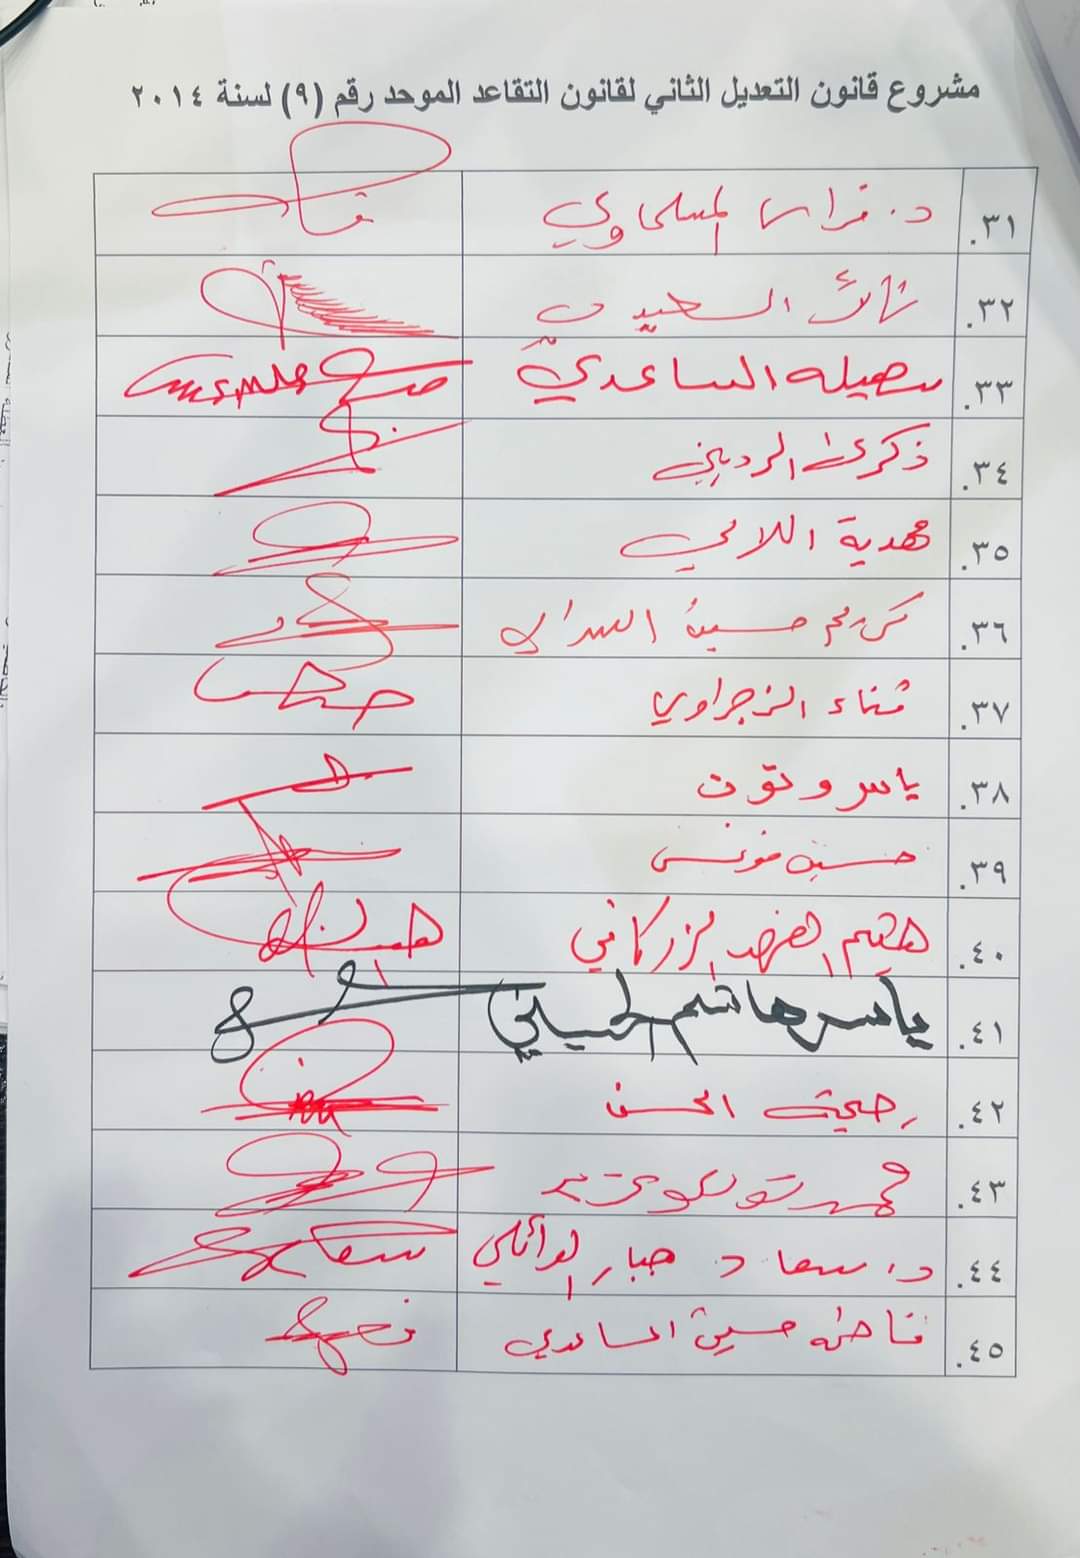 مشروع قانون التعديل الثاني لقانون التقاعد الموحد رقم (٩) لسنة ٢٠١٤
٣١. د. فراس المسلماوي
٣٢. ثائر السعيدي
٣٣. سهيله الساعدي
٣٤. ذكرى الرديني
٣٥. مهدية اللامي
٣٦. كريم حسين
٣٧. ثناء الزجراوي
٣٨. ياسر وتوت
٣٩. حسين مونس
٤٠. هيثم الفهد الزركاني
٤١. ياسر هاشم الحسيني
٤٢. الحسن
٤٣. محمد
٤٤. د. سعاد جبار الوائلي
٤٥. فاطمة حسين الساعدي